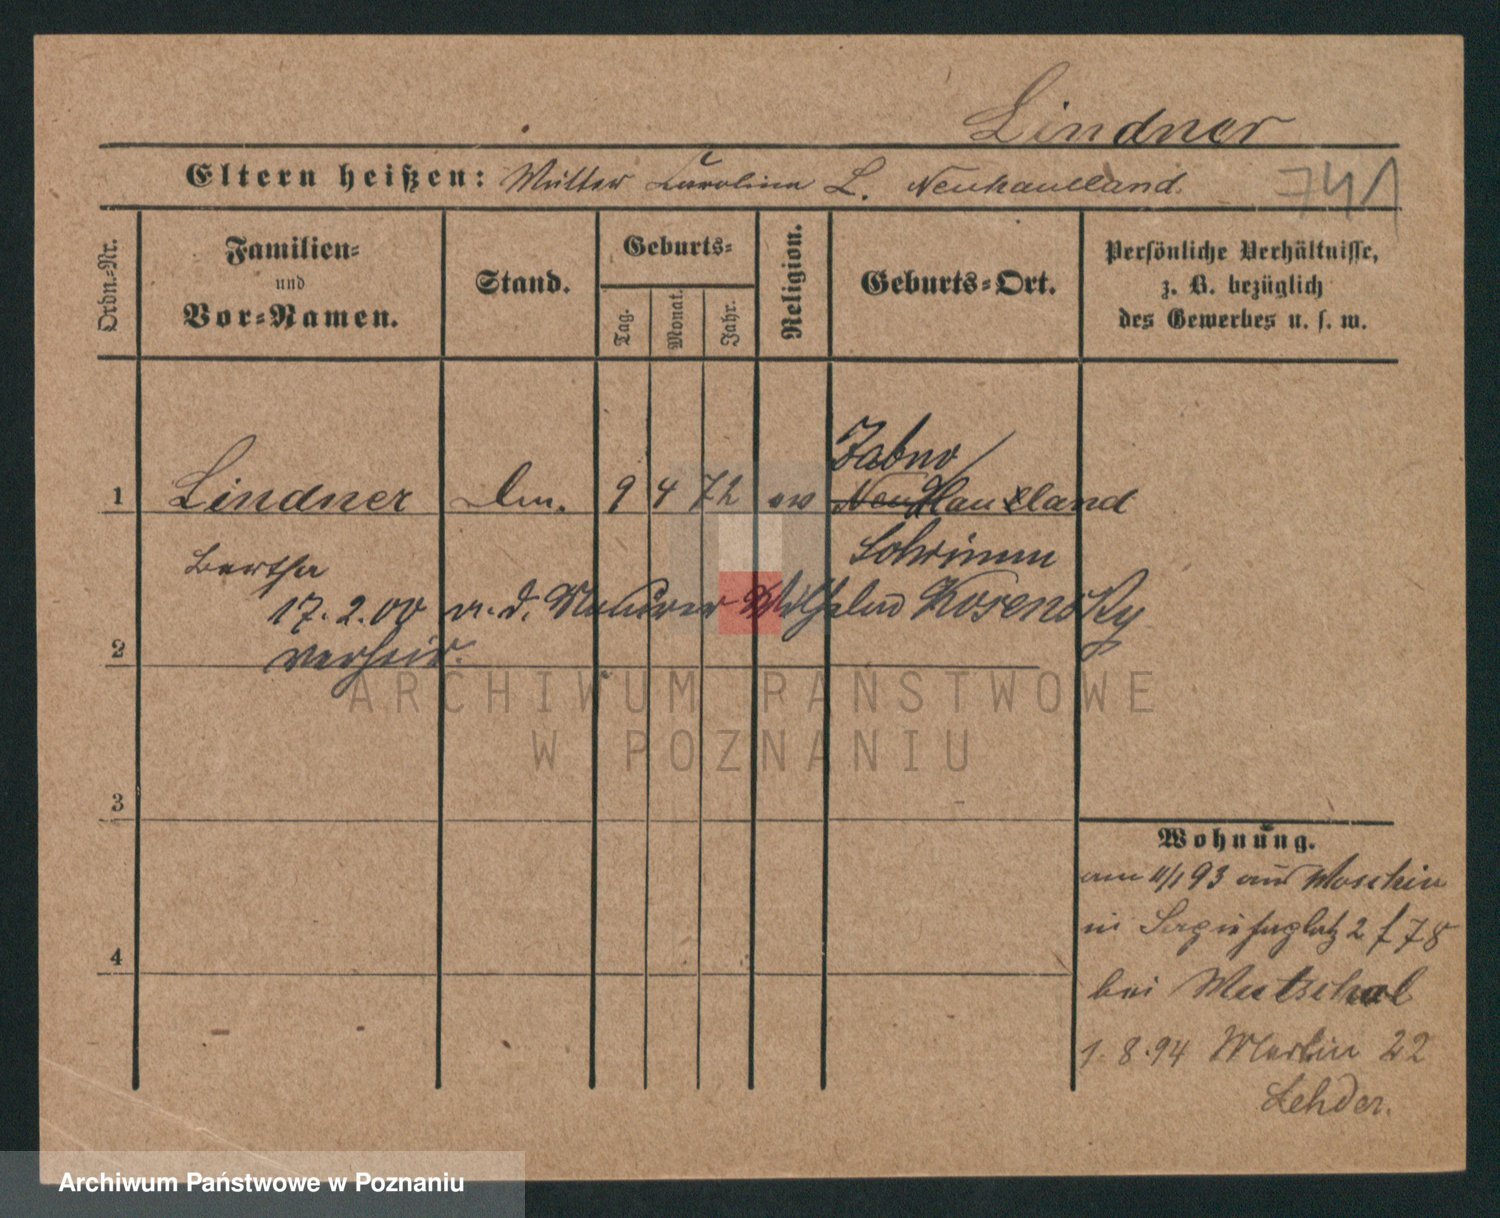 Lindner
Eltern heißen: Mutter Carolina L. Neuhauland
741
Ordn.-Nr.
Familien-
und
Vor-Namen.
Stand.
Geburts-
Tag.
Monat.
Jahr.
Religion.
Geburts-Ort.
Persönliche Verhältnisse,
z. B. bezüglich
des Gewerbes u. s. w.
Zabno
1 Lindner 9 4 72 ev Neu Hauland
Schrimm
Bertha
17. 2. 00 m. d. Maurer Wilhelm Kosensky
2 verheir.
ARCHIWUM PAŃSTWOWE
W POZNANIU
3
Wohnung.
am 11/1 93 aus Moschin
in Sapiehaplatz 2 f 78
4
bei
1. 8. 94 Martin 22
Lehder.
Archiwum Państwowe w Poznaniu